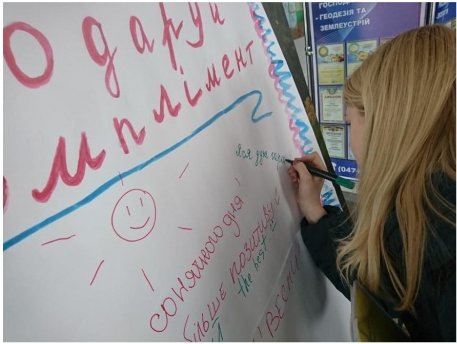 одаруй
омплімент
СОНЯЧНОГО ДНЯ
БІЛЬШЕ ПОЗИТИВУ!
the best
ВЕСНИ
- ГЕОДЕЗІЯ ТА
ЗЕМЛЕУСТРІЙ
(047